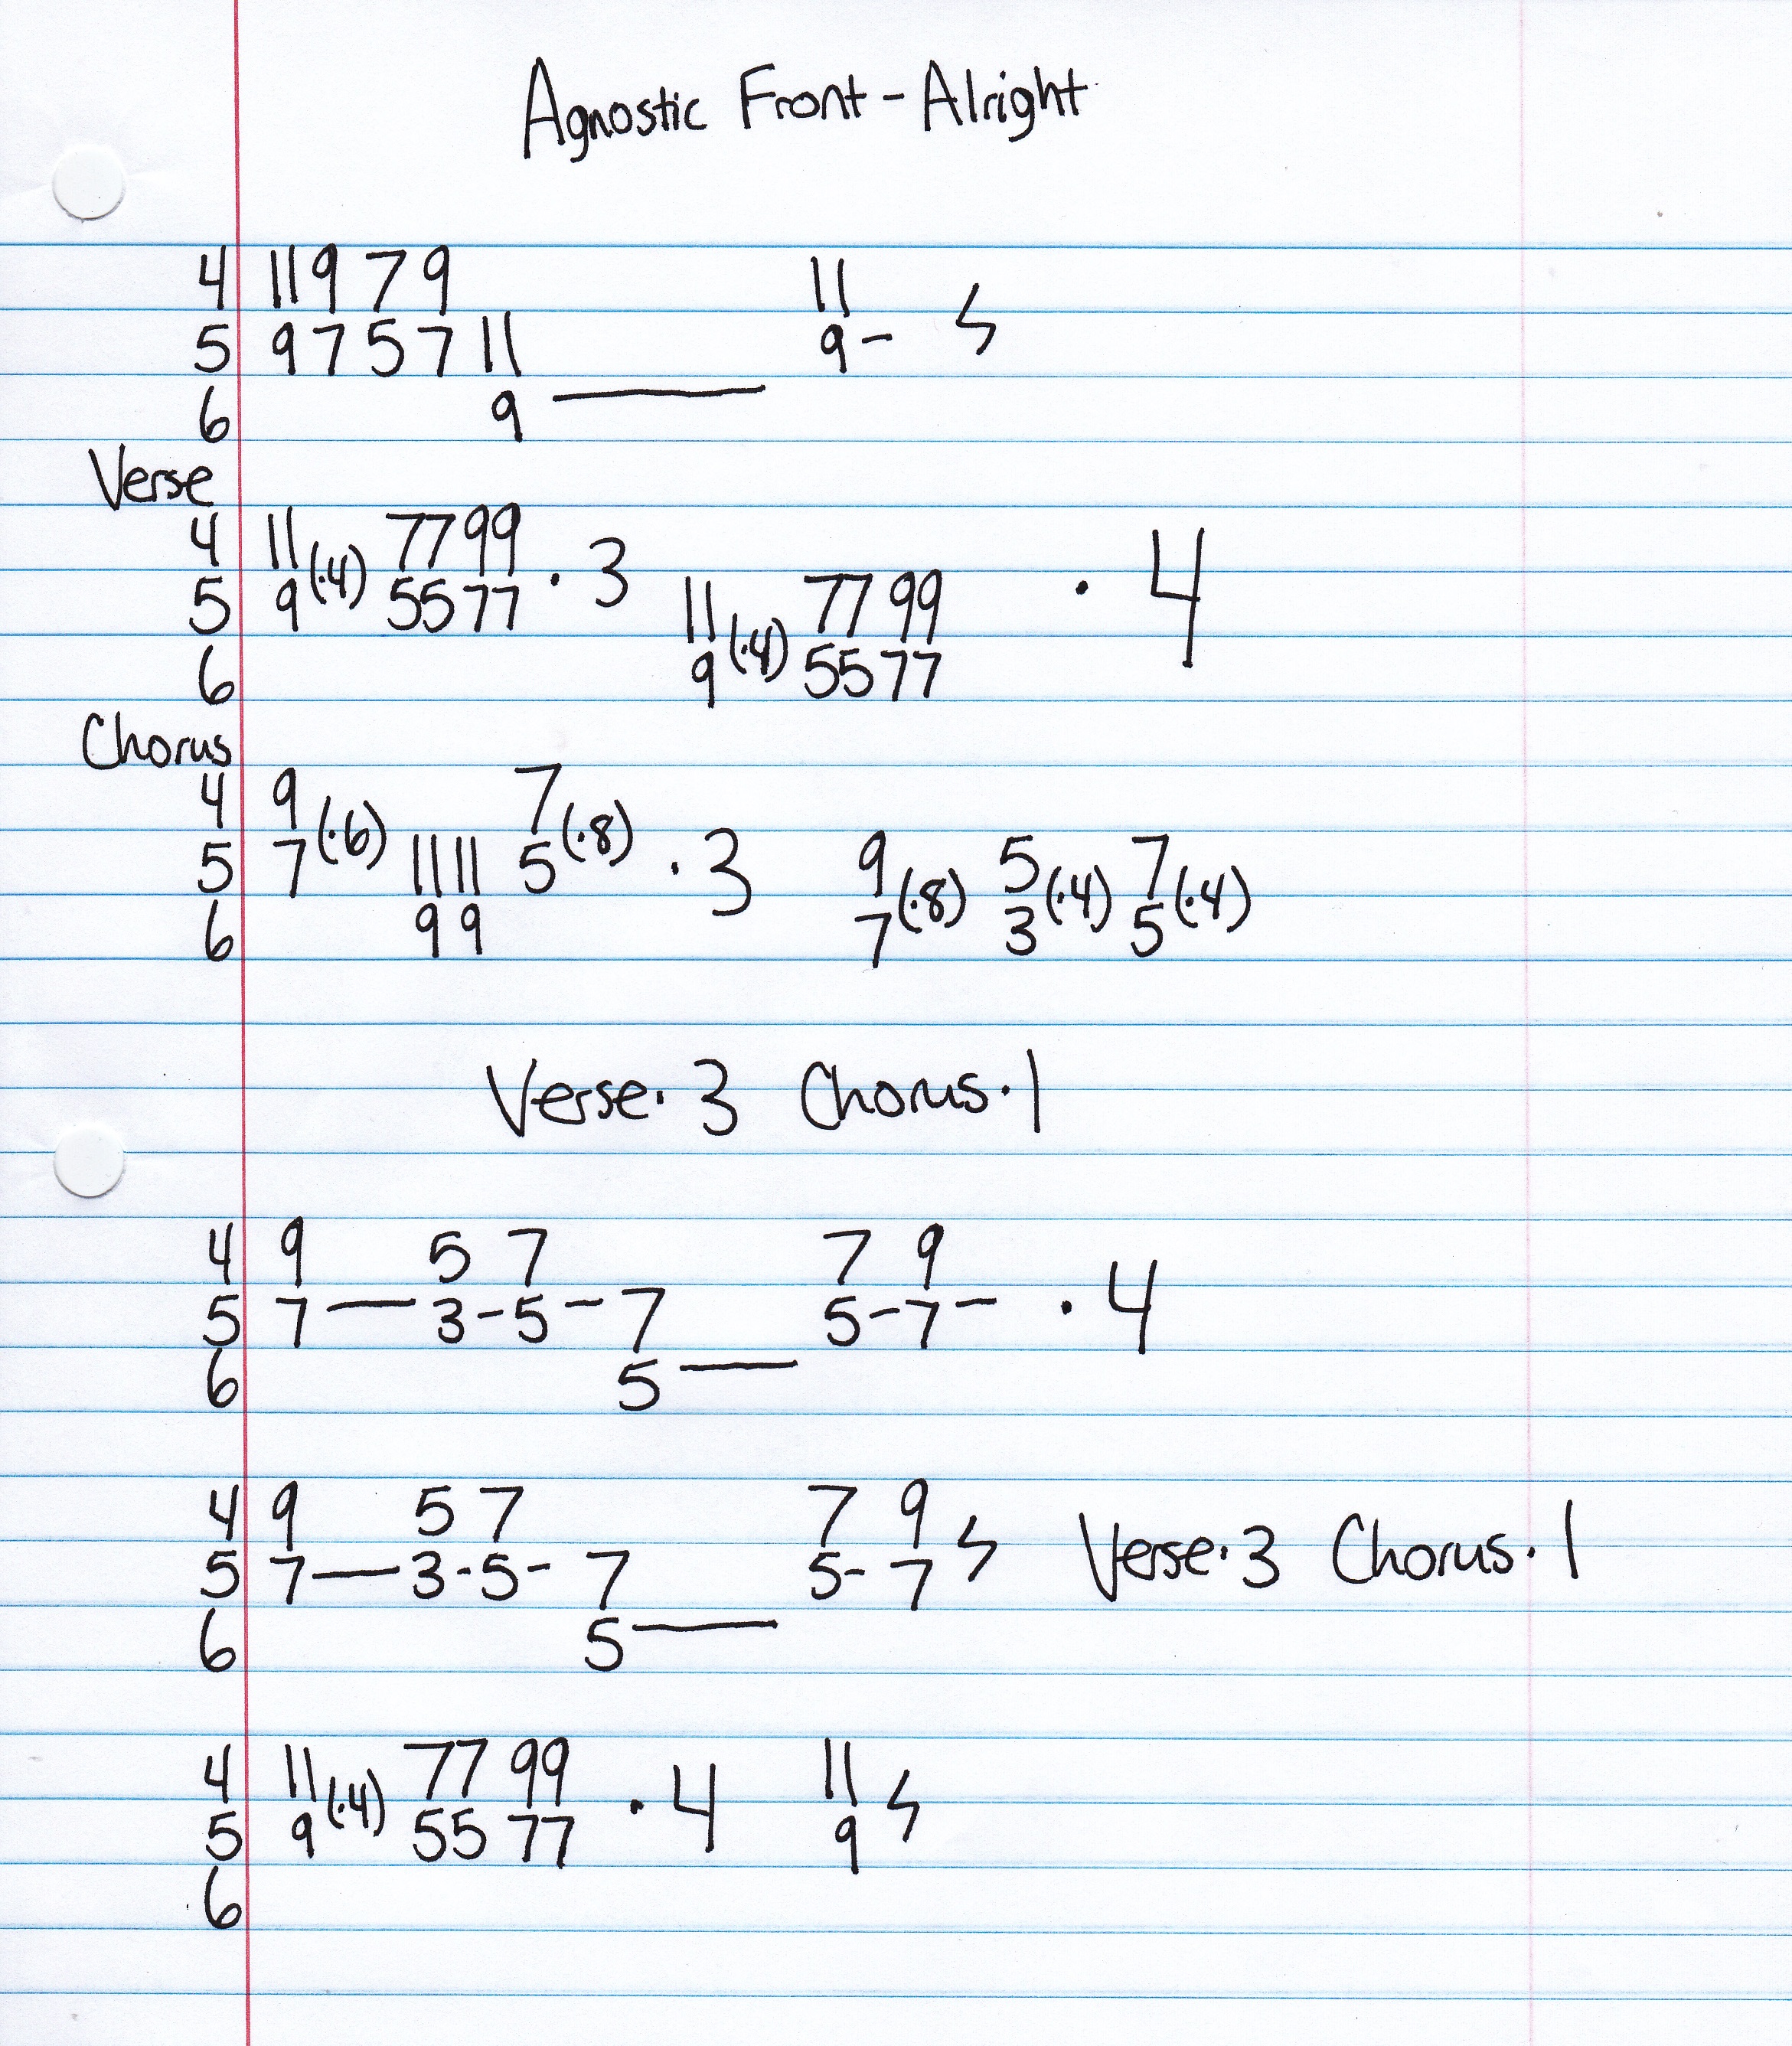 Agnostic Front - Alright
4 11 9 7 9 11
5 9 7 5 7 11 9- ϟ
6 9 ———
Verse
4 11 (·4) 77 99 · 3 · 4
5 9 55 77 11 (·4) 77 99
6 9 55 77
Chorus
4 9 (·6) 7 (·8)
5 7 11 11 5 · 3 9 (·8) 5 (·4) 7 (·4)
6 9 9 7 3 5
Verse · 3 Chorus · 1
4 9 5 7 7 9
5 7 — 3 - 5 - 7 5 - 7 - · 4
6 5 ——
4 9 5 7 7 9 ϟ Verse · 3 Chorus · 1
5 7 — 3 - 5 - 7 5 - 7
6 5 ——
4 11 (·4) 77 99 · 4 11 ϟ
5 9 55 77 9
6